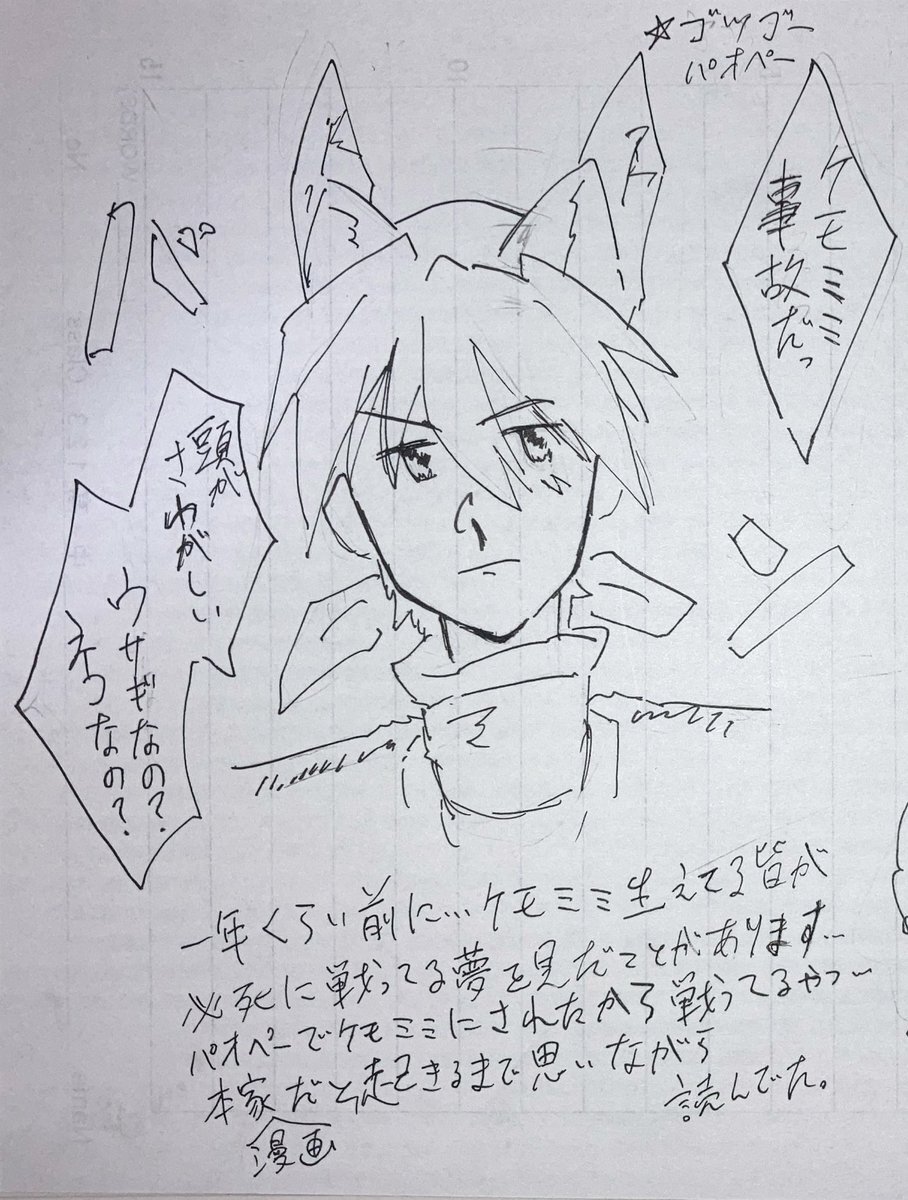 ☆ゴッゴー
パオペー
ケモミミ
事故だっ
頭が
さわがしい
ウサギなの?
ネコなの?
一年くらい前に…ケモミミ生えてる皆が
必死に戦ってる夢を見だことがあります…
パオペーでケモミミにされたから戦ってるやつ…
本家だと起きるまで思いながら
読んでた。
漫画